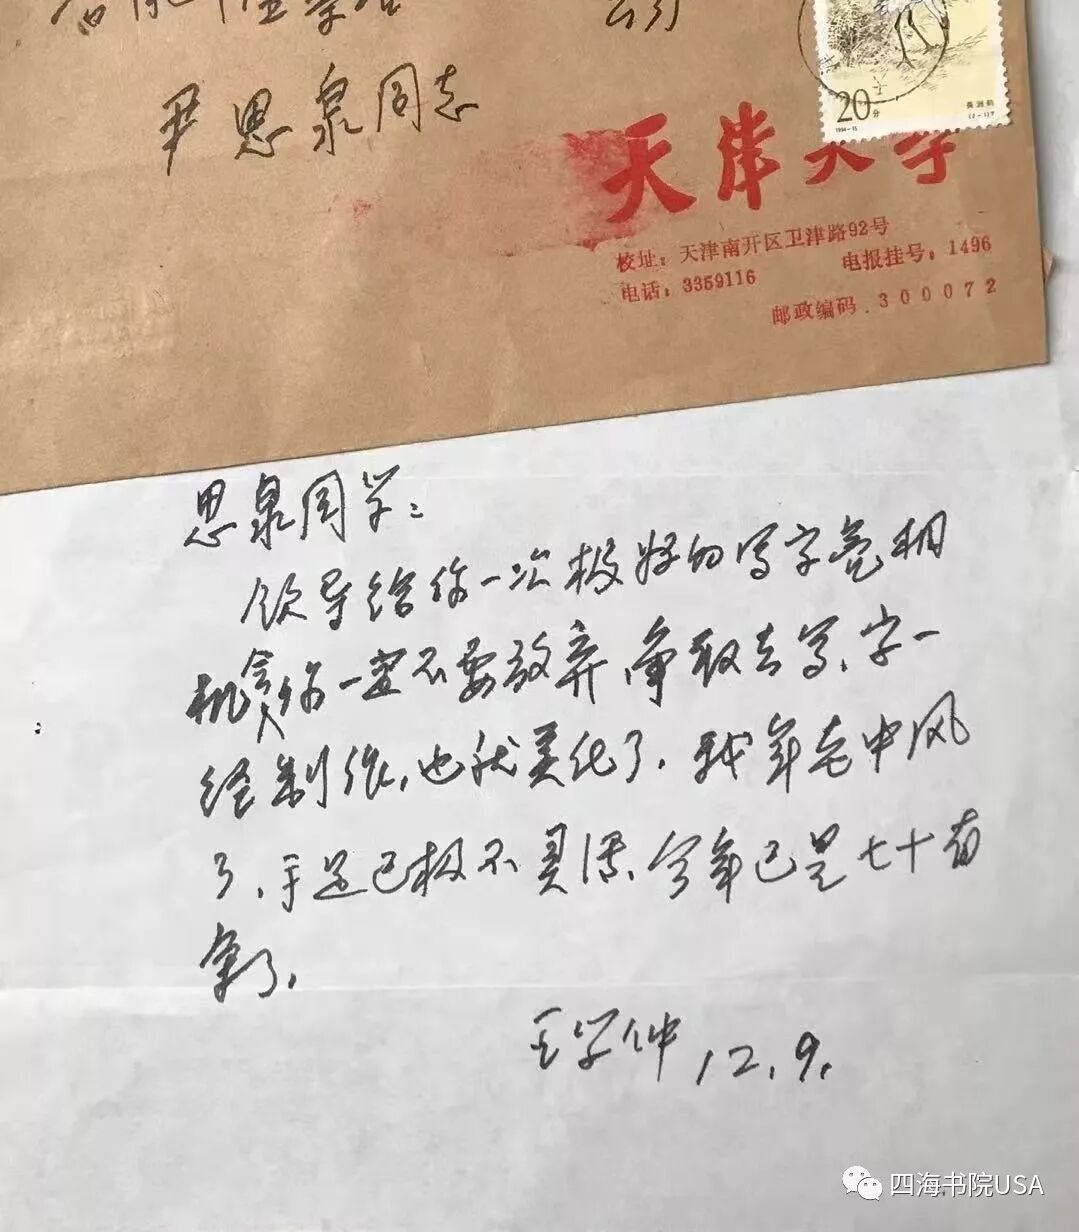 尹思泉同志
20分
1994-15
(2-1)T
天津大学
校址：天津南开区卫津路92号
电话：3359116 电报挂号：1496
邮政编码.300072
思泉同学：
领导给你一次极好的写字亮相
机会，你一定不要放弃，争取去写、字一
经制作，也就美化了．我年老中风
了、手足已极不灵活、今年已是七十有
拿了．
王学仲 12.9.
四海书院USA